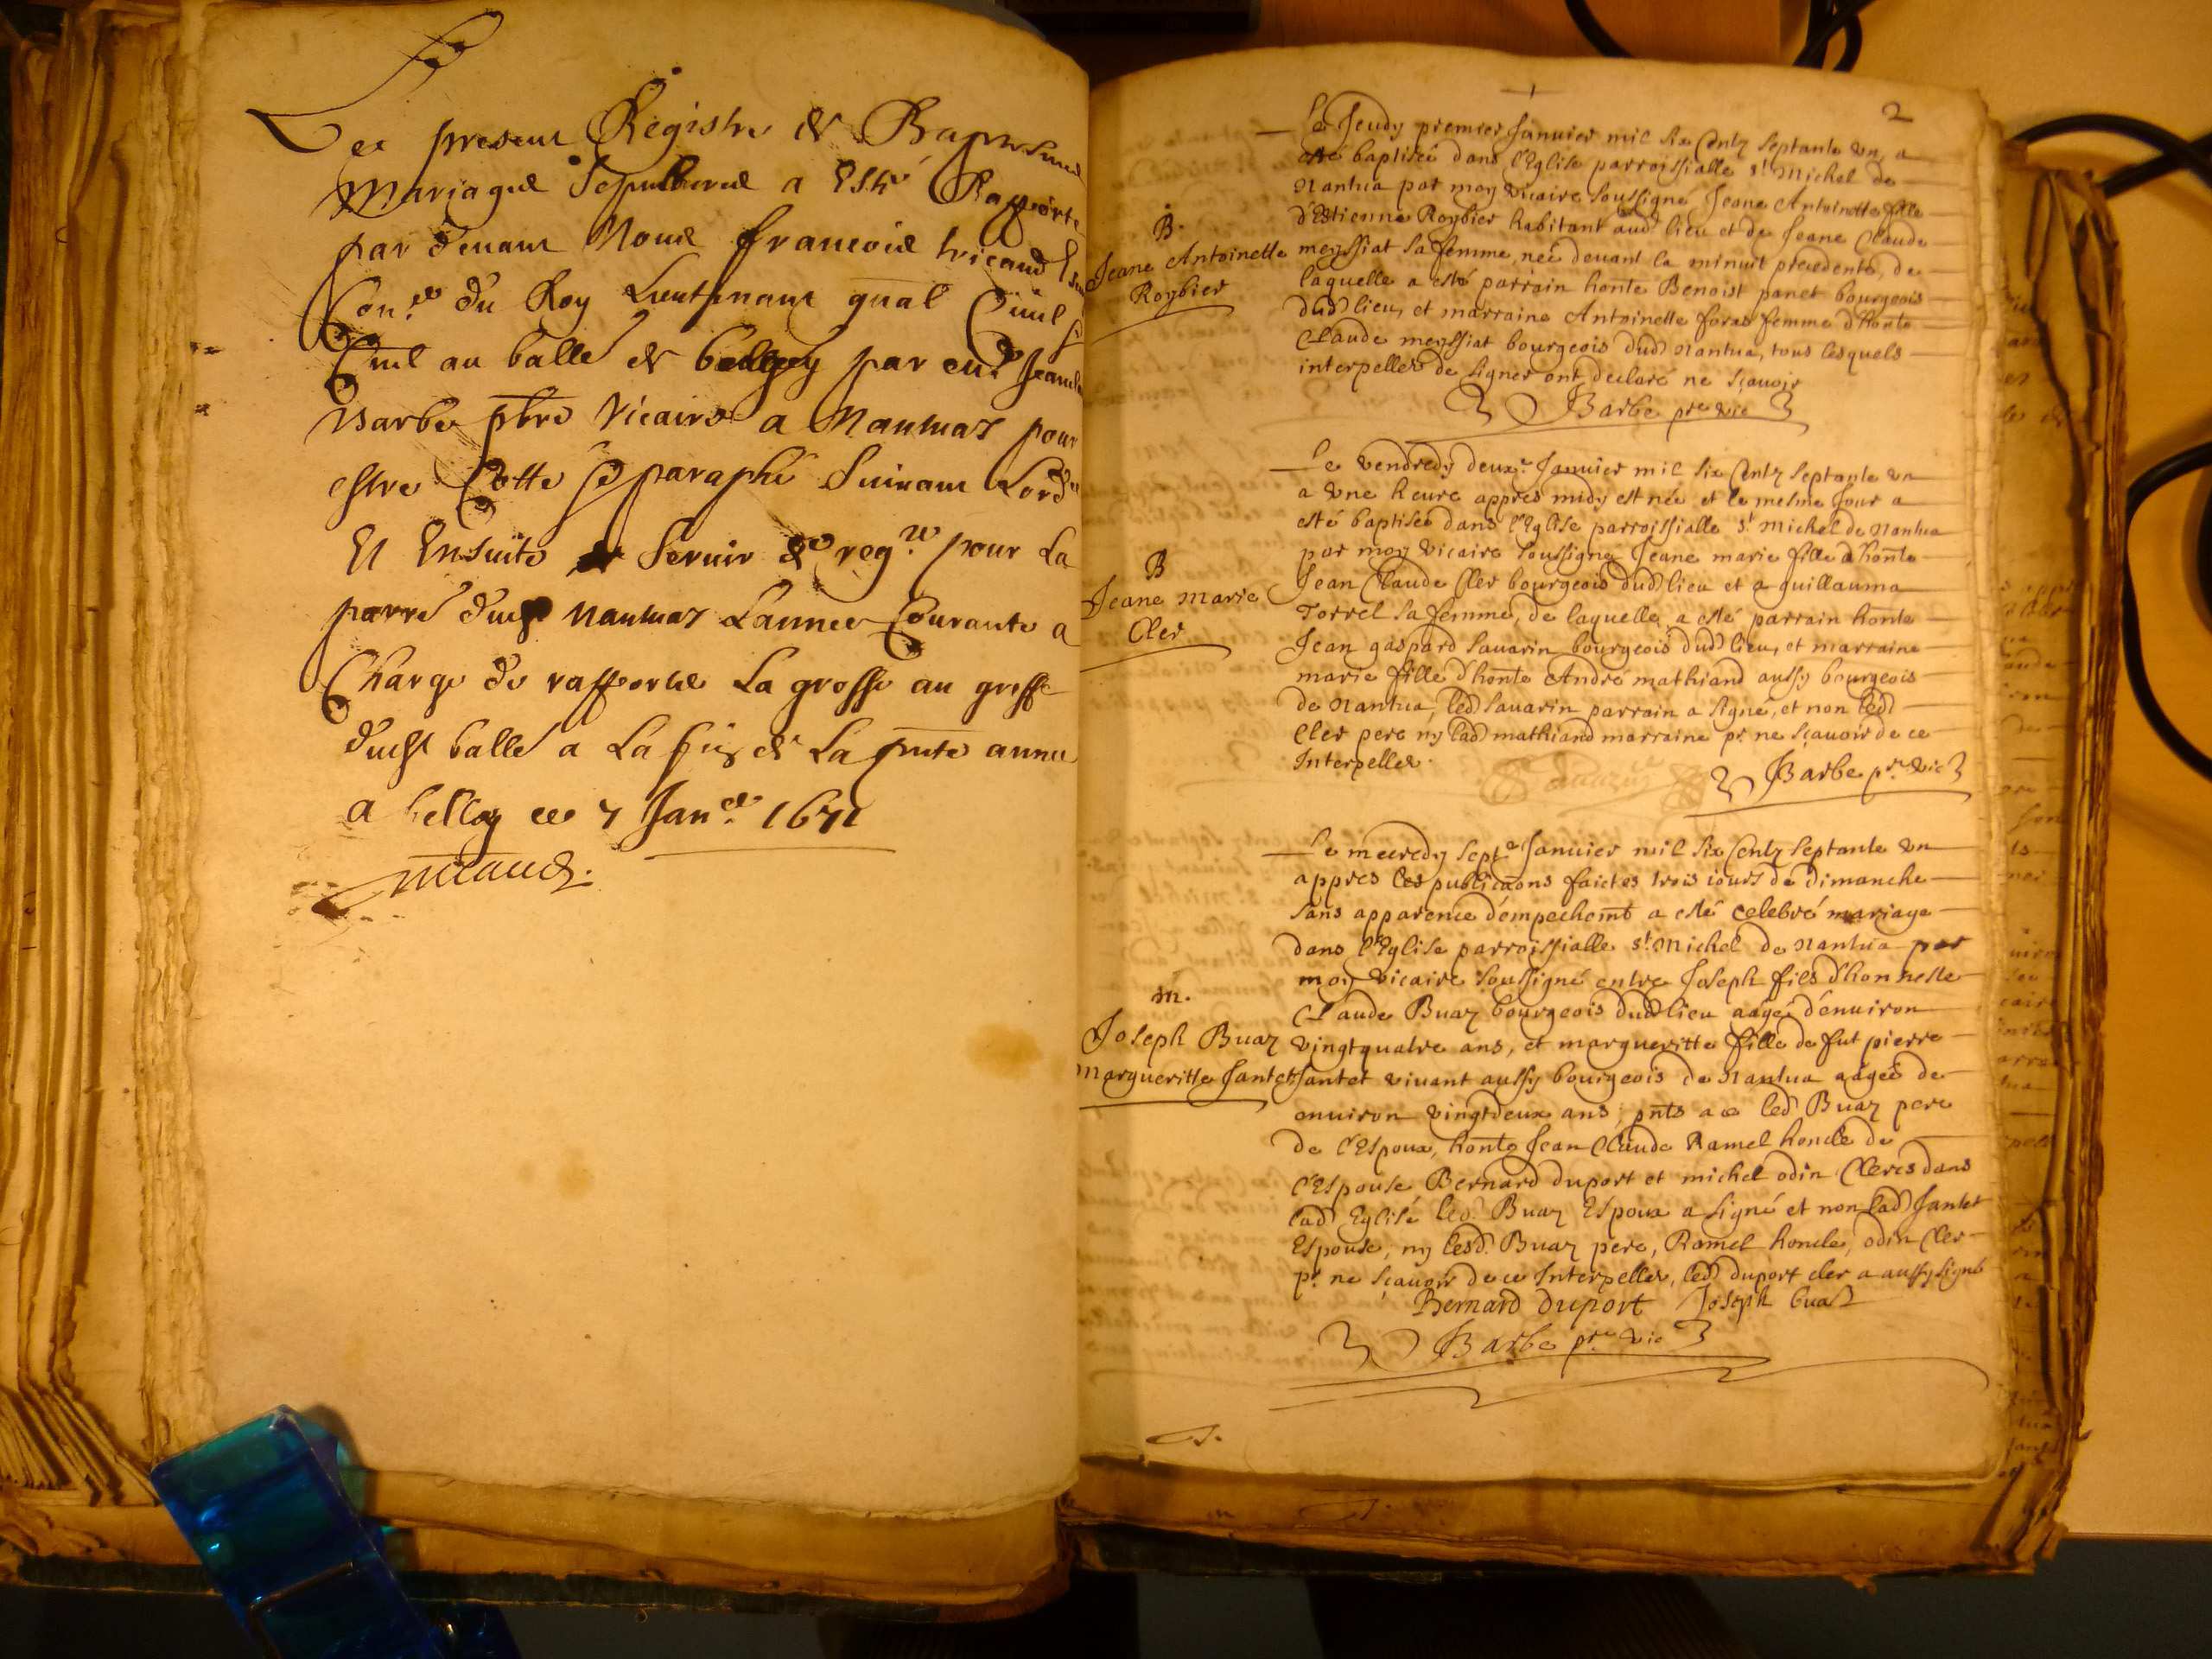 Le present Registre de Baptesmes
Mariages Sepultures a Esté Rapporté
par devant Nous francois tricaud
Con.er du Roy Lieutenant gnal Civil
Cvil au balle de bellgey par mr Jean
Barbe pbre Vicaire a Nantuas pour
estre Cotte & paraphé Suivant Lord.e
Et Ensuite Servir de reg.re pour La
parre dudt Nantuas Lannee Courante a
Charge de rapporter La grosse au greffe
dudt balle a La fin de La pnte annee
a belley ce 7 Jan.er 1671
Tricaud.
2
Le Jeudy premier Januier mil six Centz Septante vn, a
esté baptisée dans l'Eglise parroissialle st Michel de
Nantua par moy vicaire soussigné Jeane Antoinette fille
d'Estienne Roybier habitant aud lieu et de Jeane Claude
meyssiat sa femme, neé deuant la minuit precedente, de
laquelle a esté parrain honte Benoist panet bourgeois
dud lieu, et marraine Antoinette foras femme d'honte
Claude meyssiat bourgeois dud Nantua, tous lesquels
interpeller de signer ont declaré ne sçauoir
Barbe pre vic
B.
Jeane Antoinette
Roybier
Le vendredy deuxe Januier mil six Centz septante vn
a vne heure appres midy est née et le mesme Jour a
esté baptisée dans l'Eglise parroissialle st Michel de Nantua
par moy vicaire soussigné Jeane marie fille d'honte
Jean Claude Cler bourgeois dud lieu et a guillauma
Torrel sa femme, de laquelle a esté parrain honte
Jean gaspard sauarin bourgeois dud lieu, et marraine
marie fille d'honte André mathiand aussy bourgeois
de Nantua, led sauarin parrain a signé, et non led
Cler pere ny lad mathiand marraine pr. ne sçauoir de ce
Interpeller.
Barbe pre vic
B
Jeane Marie
Cler
Le mecredy septe Januier mil six Centz septante vn
appres les publicaons faictes trois iours de dimanche
sans apparence d'empechemt a esté celebré mariage
dans l'Eglise parroissialle st. Michel de Nantua par
moy vicaire soussigné entre Joseph fils d'honneste
Claude Buaz bourgeois dud lieu aagé d'enuiron
vingtquatre ans, et margueritte fille de fut pierre
Jantet viuant aussy bourgeois de Nantua aageé de
enuiron vingtdeux ans, pnts a ce led Buaz pere
de l'Espoux, honte Jean Claude Ramel honcle de
l'Espouse Bernard duport et michel odin Clercs dans
lad Eglise led. Buaz Espoux a signé et non lad Jantet
Espouse, ny lesd. Buaz pere, Ramel honcle, odin Cler
pr. ne sçauoir de ce Interpeller, led duport cler a aussy signé
Bernard duport Joseph buaz
Barbe pre vic
m.
Joseph Buaz
Margueritte Jantet